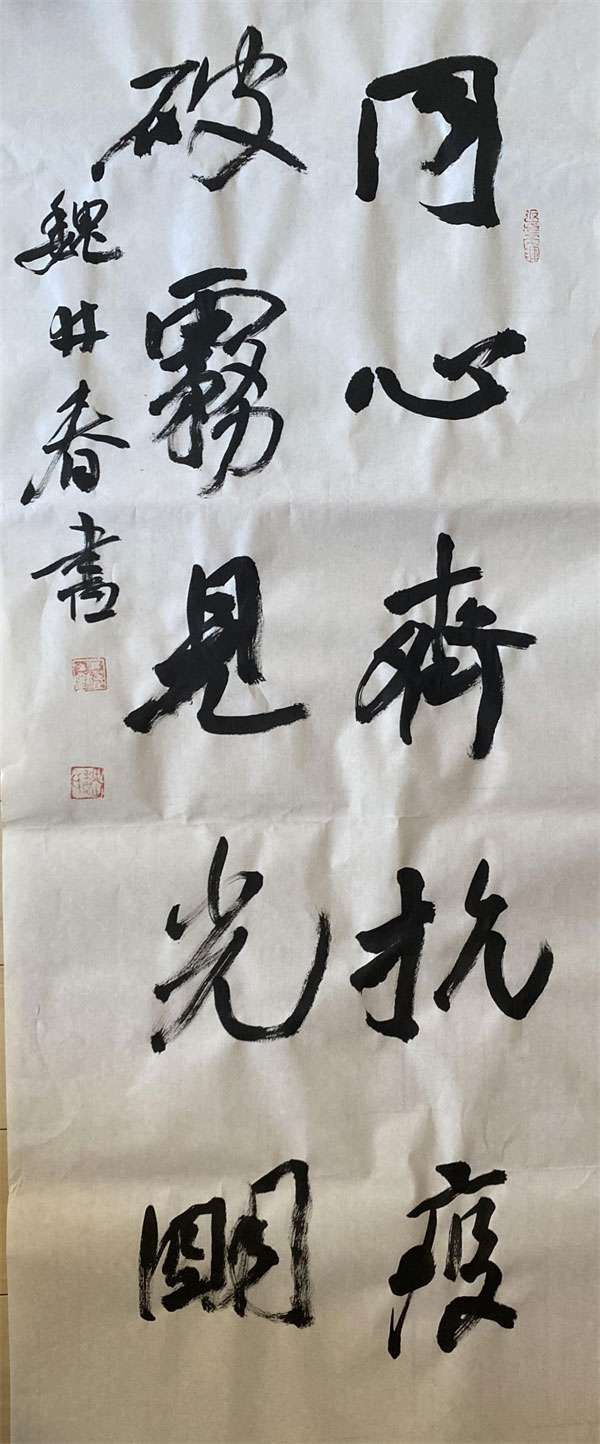 同心齊抗疫
破霧見光明
魏春書